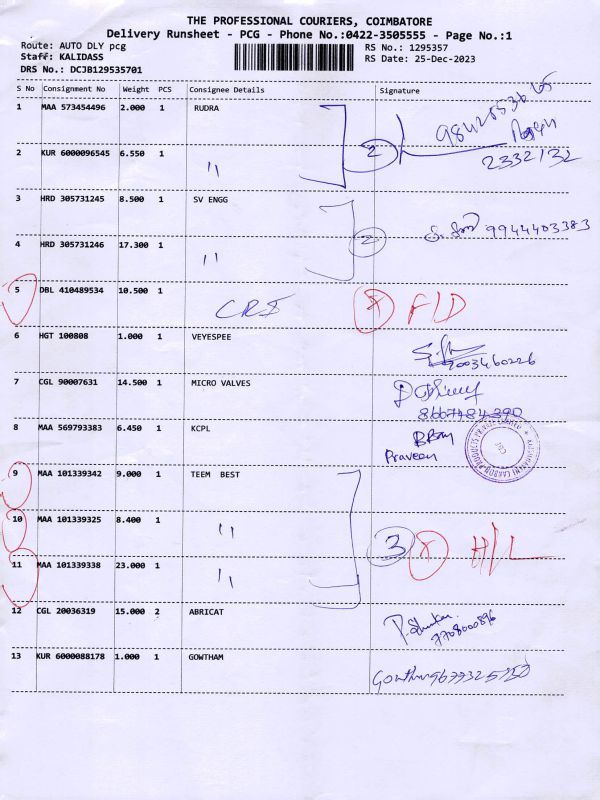 THE PROFESSIONAL COURIERS, COIMBATORE
Delivery Runsheet - PCG - Phone No.:0422-3505555 - Page No.:1
Route: AUTO DLY pcg RS No.: 1295357
Staff: KALIDASS RS Date: 25-Dec-2023
DRS No.: DCJB129535701
S No Consignment No Weight PCS Consignee Details Signature
1 MAA 573454496 2.000 1 RUDRA
2 KUR 6000096545 6.550 1 " 2 2332132
3 HRD 305731245 8.500 1 SV ENGG
4 HRD 305731246 17.300 1 " 2 9944403383
5 DBL 410489534 10.500 1 CRI X F/D
6 HGT 100808 1.000 1 VEYESPEE
9003460226
7 CGL 90007631 14.500 1 MICRO VALVES
8667484390
8 MAA 569793383 6.450 1 KCPL
Praveen
9 MAA 101339342 9.000 1 TEEM BEST
10 MAA 101339325 8.400 1 "
3 X H/L
11 MAA 101339338 23.000 1 "
12 CGL 20036319 15.000 2 ABRICAT
7708000896
13 KUR 6000088178 1.000 1 GOWTHAM
Gowtham